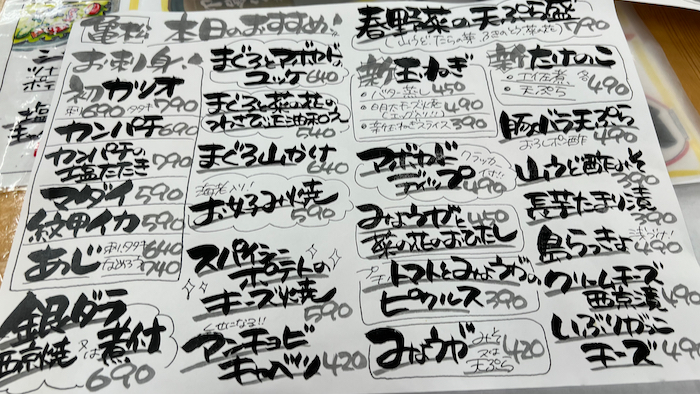 本日のおすすめ!
お刺身!
初カツオ
刺690 タタキ790
カンパチ690
カンパチの
塩たたき790
マダイ590
紋甲イカ590
あじ 刺、タタキ640
なめろう740
銀ダラ
西京焼又は煮付
690
まぐろとアボカドの
ユッケ640
まぐろと菜の花の
わさび正油和え
540
まぐろ山かけ
640
海老入り!
お好み焼
590
スパイシー
ポテトの
チーズ焼
590
くせになる!!
アンチョビ
キャベツ420
春野菜の天ぷら盛
790
新玉ねぎ
・バター蒸し450
490
・新玉ねぎスライス390
新たけのこ
・土佐煮 各
・天ぷら490
アボカド
ディップ
クラッカー
付!!
490
みょうがと450
菜の花のおひたし
プチトマトとみょうがの
ピクルス390
みょうが
みそ
又は
天ぷら
420
豚バラ天ぷら
おろしポン酢490
山うど酢みそ
390
長芋たまり漬
390
島らっきょ
浅づけ!
490
クリームチーズ
西京漬490
いぶりがっこ
チーズ490